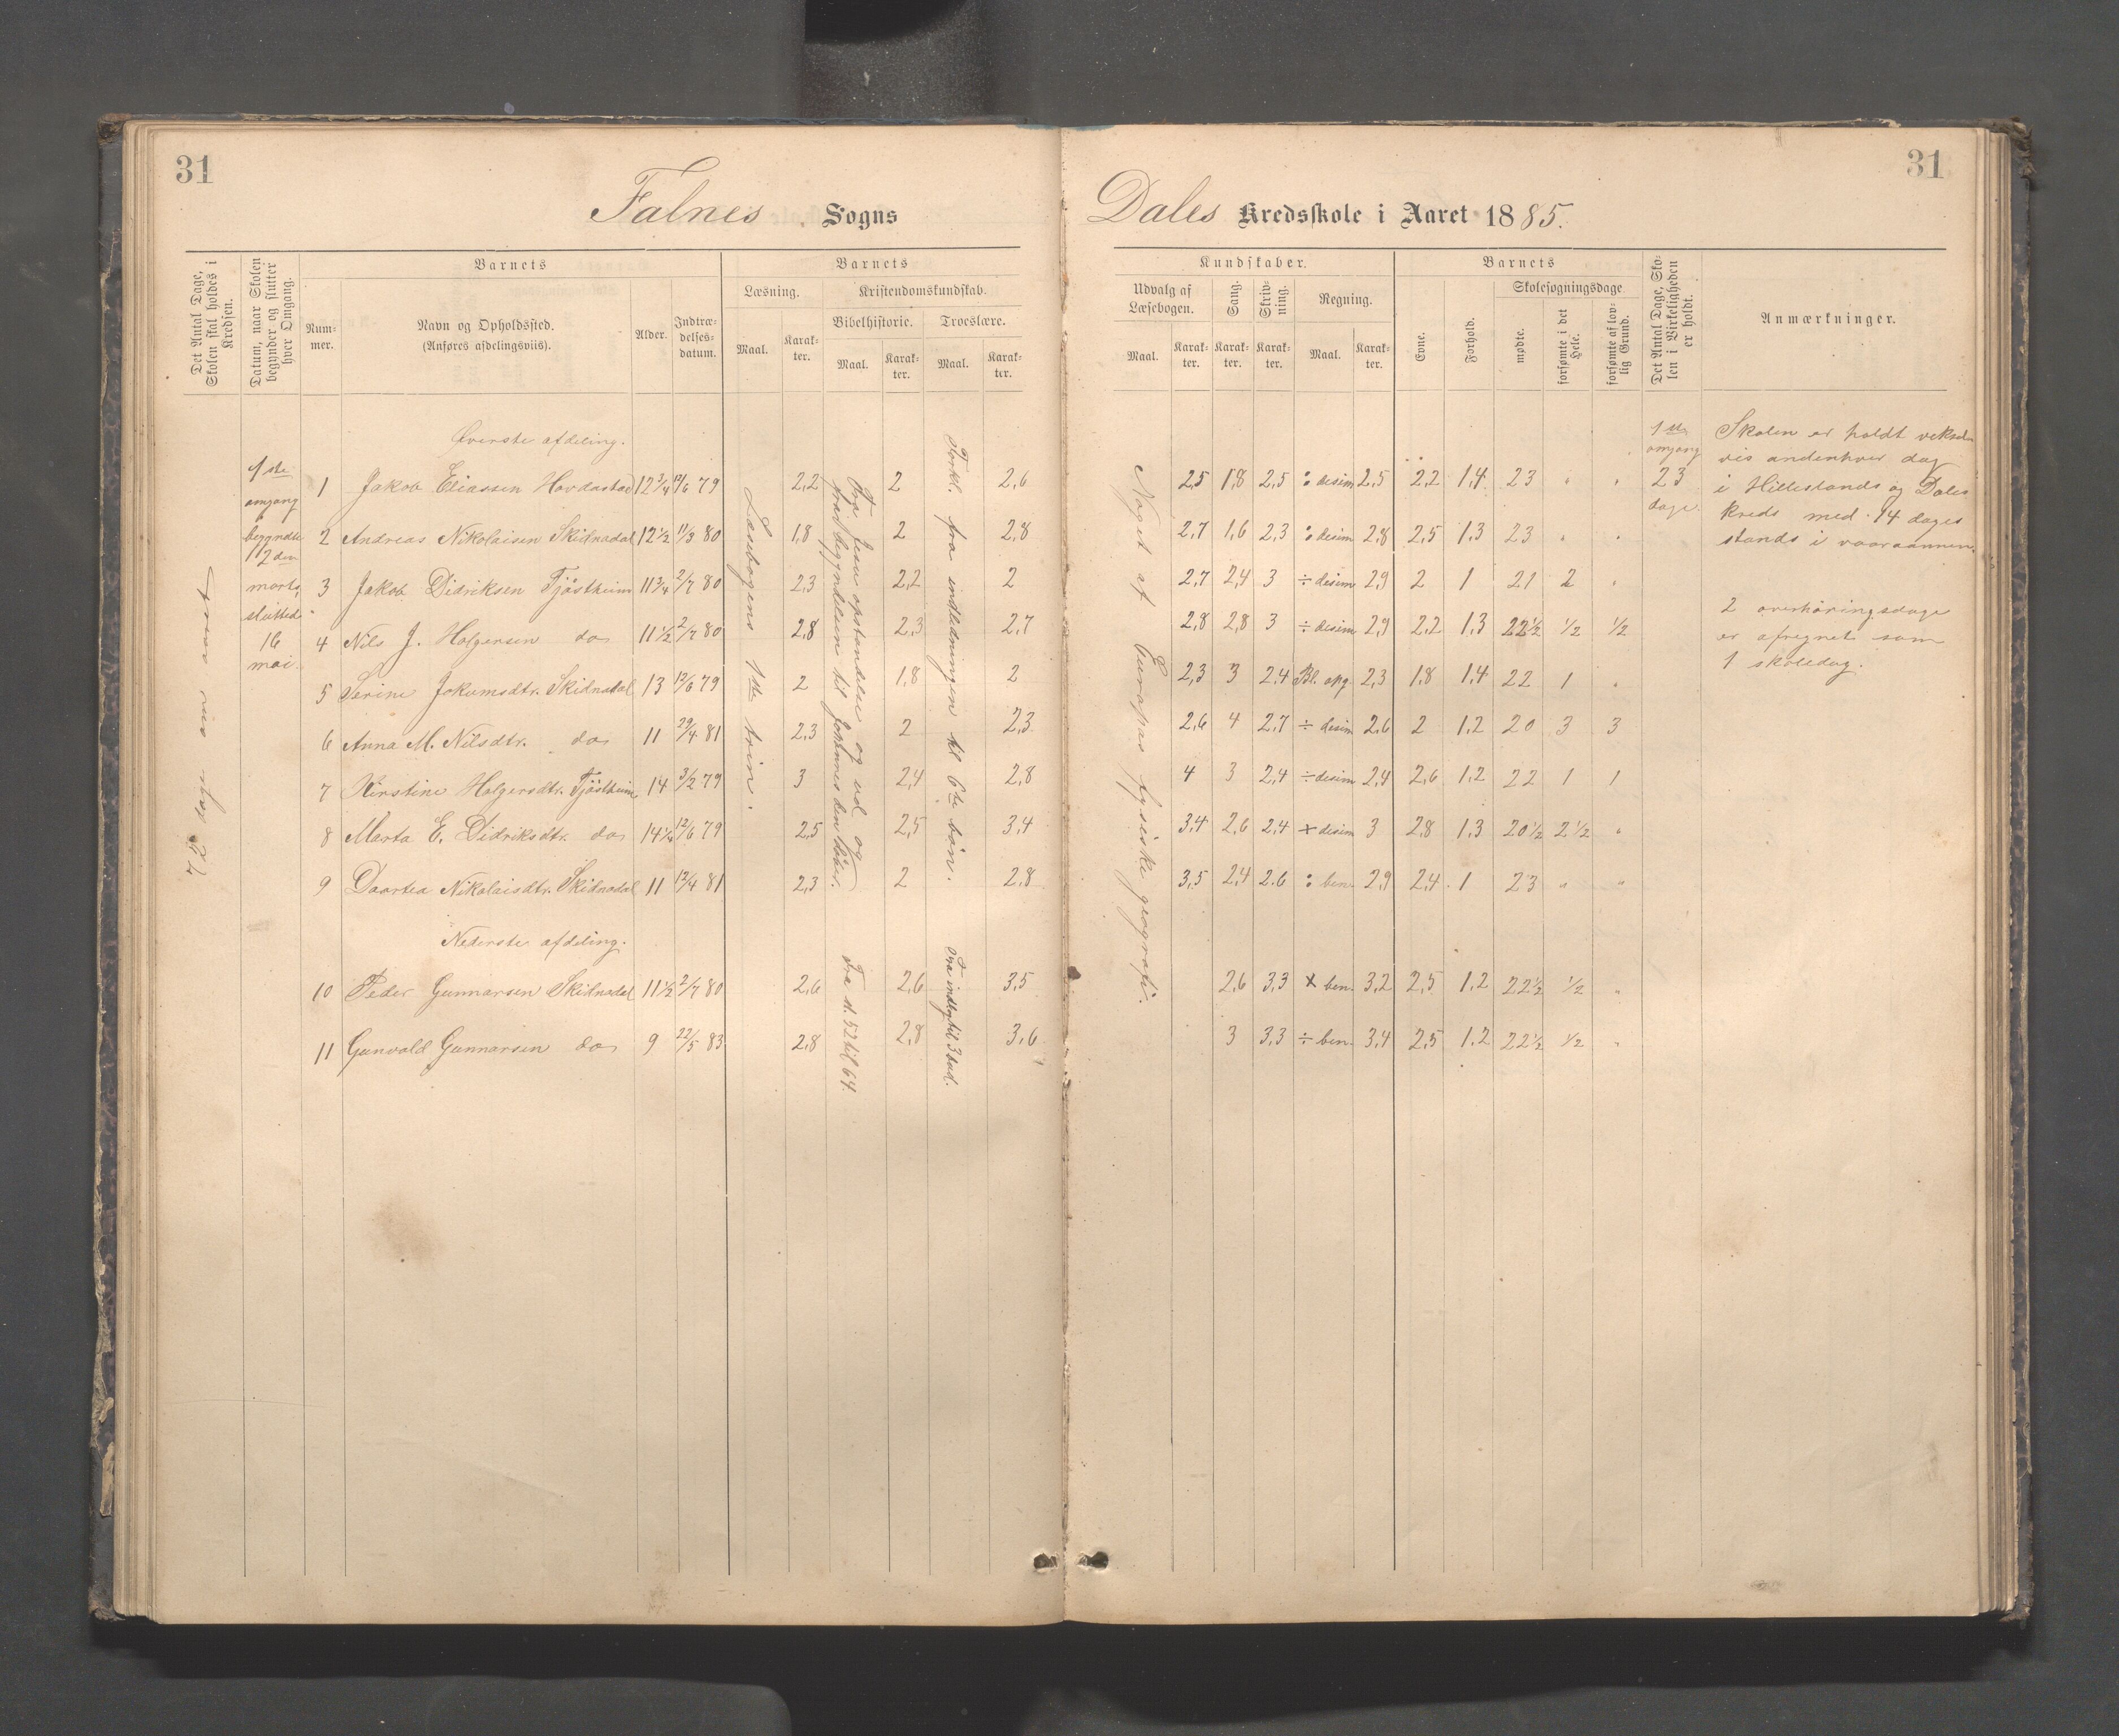 31
31
Falnes Sogns
Dales Kredsskole i Aaret 1885.
Det Antal Dage, Skolen skal holdes i Kredsen.
Datum, naar Skolen begynder og slutter hver Omgang.
Barnets
Num-
mer.
Navn og Opholdssted.
(Anføres afdelingsviis).
Alder.
Indtræ-
delses-
datum.
Barnets
Læsning.
Kristendomskundskab.
Bibelhistorie.
Troeslære.
Maal.
Karak-
ter.
Maal.
Karak-
ter.
Maal.
Karak-
ter.
Kundskaber.
Udvalg af
Læsebogen.
Sang.
Skriv-
ning.
Regning.
Maal.
Karak-
ter.
Karak-
ter.
Karak-
ter.
Maal.
Karak-
ter.
Barnets
Evne.
Forhold.
Skolesøgningsdage.
mødte.
forsømte i det Hele.
forsømte af lov-
lig Grund.
Det Antal Dage, Sko-
len i Virkeligheden
er holdt.
Anmærkninger.
Øverste afdeling.
1ste
omgang
begyndte
12den
marts,
sluttede
16
mai
1 Jakob Eliassen Hovdastad 12 3/4 12/6 79 2,2 2 2,6 2,5 1,8 2,5 : desim 2,5 2,2 1,4 23 " "
2 Andreas Nikolaisen Skidnadal 12 1/2 11/3 80 1,8 2 2,8 2,7 1,6 2,3 : desim 2,8 2,5 1,3 23 " "
3 Jakob Didriksen Tjøstheim 11 3/4 2/7 80 2,3 2,2 2 2,7 2,4 3 ÷ desim 2,9 2 1 21 2 "
4 Nils J. Holgersen do 11 1/2 2/7 80 2,8 2,3 2,7 2,8 2,8 3 ÷ desim 2,9 2,2 1,3 22 1/2 1/2 1/2
5 Serine Jokumsdtr. Skidnadal 13 12/6 79 2 1,8 2 2,3 3 2,4 Bl. opg. 2,3 1,8 1,4 22 1 "
6 Anna M. Nilsdtr. do 11 29/4 81 2,3 2 2,3 2,6 4 2,7 ÷ desim 2,6 2 1,2 20 3 3
7 Kirstine Holgersdtr. Tjøstheim 14 3/2 79 3 2,4 2,8 4 3 2,4 ÷ desim 2,4 2,6 1,2 22 1 1
8 Marta E. Didriksdtr. do 14 1/4 12/6 79 2,5 2,5 3,4 3,4 2,6 2,4 × desim 3 2,8 1,3 20 1/2 2 1/2 "
9 Daartea Nikolaisdtr. Skidnadal 11 12/4 81 2,3 2 2,8 3,5 2,4 2,6 : ben. 2,9 2,4 1 23 " "
Læsebogens 1ste trin.
Fra Jesu opstandelse og ud og
fra begyndelsen til Johannes den døber.
Forkl. fra indledningen til 6te bøn.
Noget af Europas fysiske geografi.
Nederste afdeling.
10 Peder Gunnarsen Skidnadal 11 1/2 2/7 80 2,6 2,6 3,5 2,6 3,3 × ben. 3,2 2,5 1,2 22 1/2 1/2 "
11 Gunvald Gunnarsen do 9 22/5 83 2,8 2,8 3,6 3 3,3 ÷ ben. 3,4 2,5 1,2 22 1/2 1/2 "
Fra st. 52 til 64.
Fra indl. til 3 bud.
1ste
omgang
23
dage.
Skolen er holdt veksel-
vis andenhver dag
i Hillestands og Dales
kreds med 14 dages
stands i vaaraannen.
2 overhøringsdage
er afregnet som
1 skoledag.